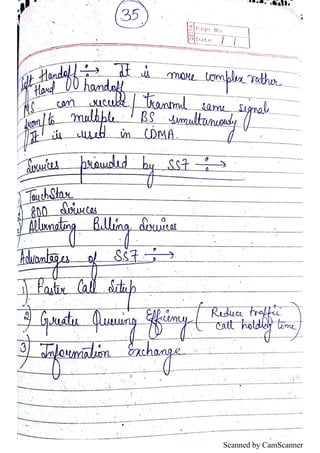 35
Page No.
Date / /
Soft Handoff :→ It is more complex rather
Hard handoff
MS can receive / Transmit same signal
from/to multiple BS simultaneously
It is used in CDMA.
Services provided by SS7 :→
1) TouchStar
2) 800 Services
3) Alternating Billing Services
Advantages of SS7 :→
1) Faster Call Setup
2) Greater Queuing Efficiency ( Reduce traffic
call holding time)
3) Information Exchange
Scanned by CamScanner